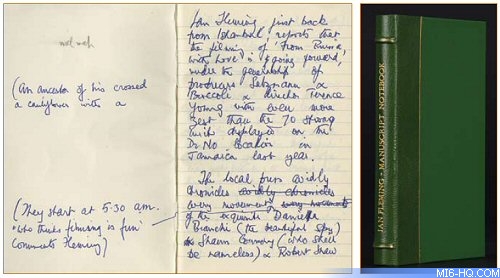 (An ancestor of his crossed
a cauliflower with a
(They start at 5.30 am.
"Who thinks filming is fun"
Comments Fleming)
Ian Fleming, just back
from Istanbul, reports that
the filming of 'From Russia,
with Love' is going forward,
under the generalship of
producers Saltzmann &
Broccoli & director Terence
Young with even more
zest than the 70 strong
unit displayed on the
Dr No location in
Jamaica last year.
The local press avidly
chronicles avidly chronicles
every movement every movement
of the exquisite Daniella
Bianchi (the beautiful Spy)
& Shawn Connery (who shall
be nameless) & Robert Shaw
IAN FLEMING - MANUSCRIPT NOTEBOOK
MI6-HQ.COM